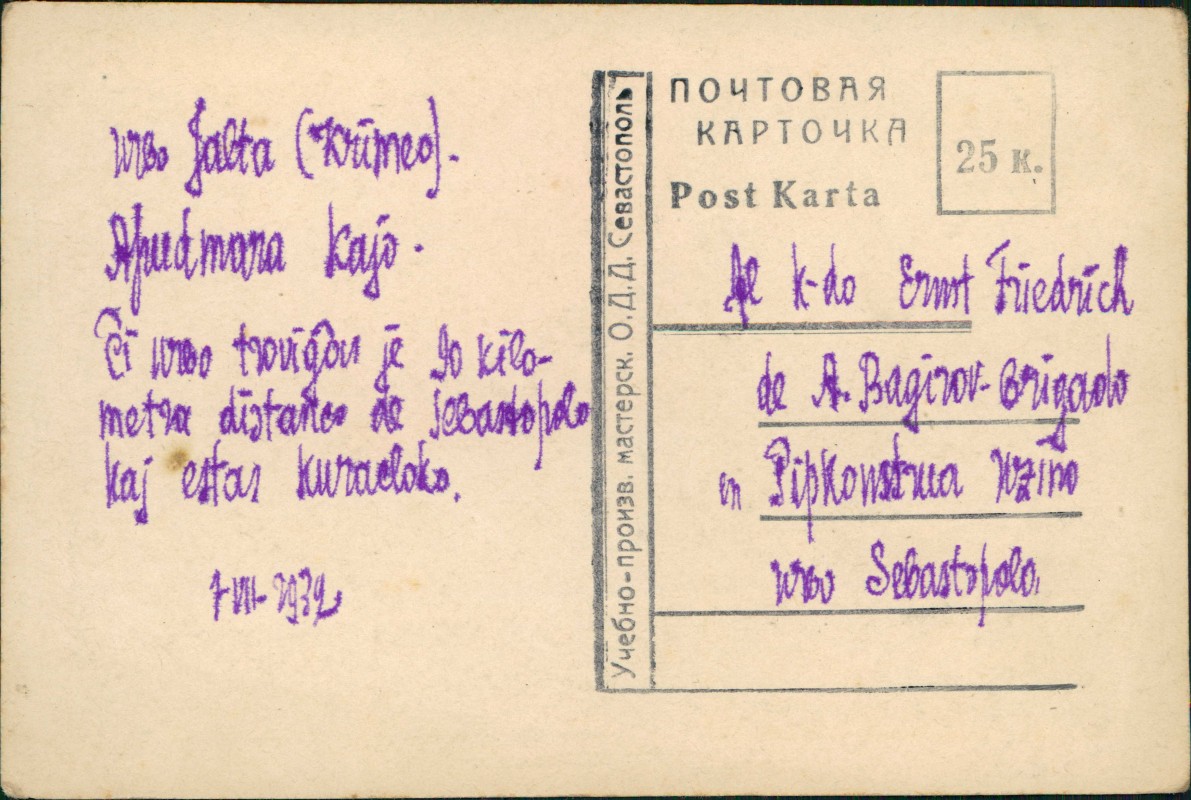 urbo Jalta (Krimeo).
Apudmara kajo.
Ĉi urbo troviĝas je 90 kilo-
metra distanco de Sebastopolo
kaj estas kuracloko.
7-VII-1932
Учебно-произв. мастерск. О.Д.Д. Севастополь
ПОЧТОВАЯ
КАРТОЧКА
Post Karta
25 к.
Al k-do Ernst Friedrich
de A. Bagirov-Brigado
en Ŝipkonstrua Uzino
urbo Sebastopolo